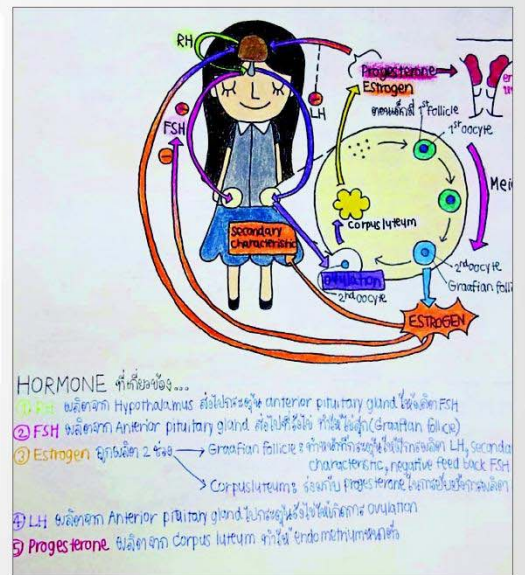 RH
Progesterone
Estrogen
LH
FSH
1st follicle
1st oocyte
Mei
Corpus luteum
secondary
characteristic
ovulation
2nd oocyte
2nd oocyte
Graafian folli
ESTROGEN
HORMONE ที่เกี่ยวข้อง...
① RH ผลิตจาก Hypothalamus ส่งไปกระตุ้น anterior pituitary gland ให้ผลิต FSH
② FSH ผลิตจาก Anterior pituitary gland ส่งไปที่รังไข่ ทำให้ไข่สุก (Graafian follicle)
③ Estrogen ถูกผลิต 2 ช่วง → Graafian follicle : LH, seconda
characteristic, negative feed back FSH
Corpus luteum : ร่วมกับ progesterone
④ LH ผลิตจาก Anterior pituitary gland ไปกระตุ้นรังไข่ให้เกิดการ ovulation
⑤ Progesterone ผลิตจาก corpus luteum ทำให้ endometrium หนาตัว